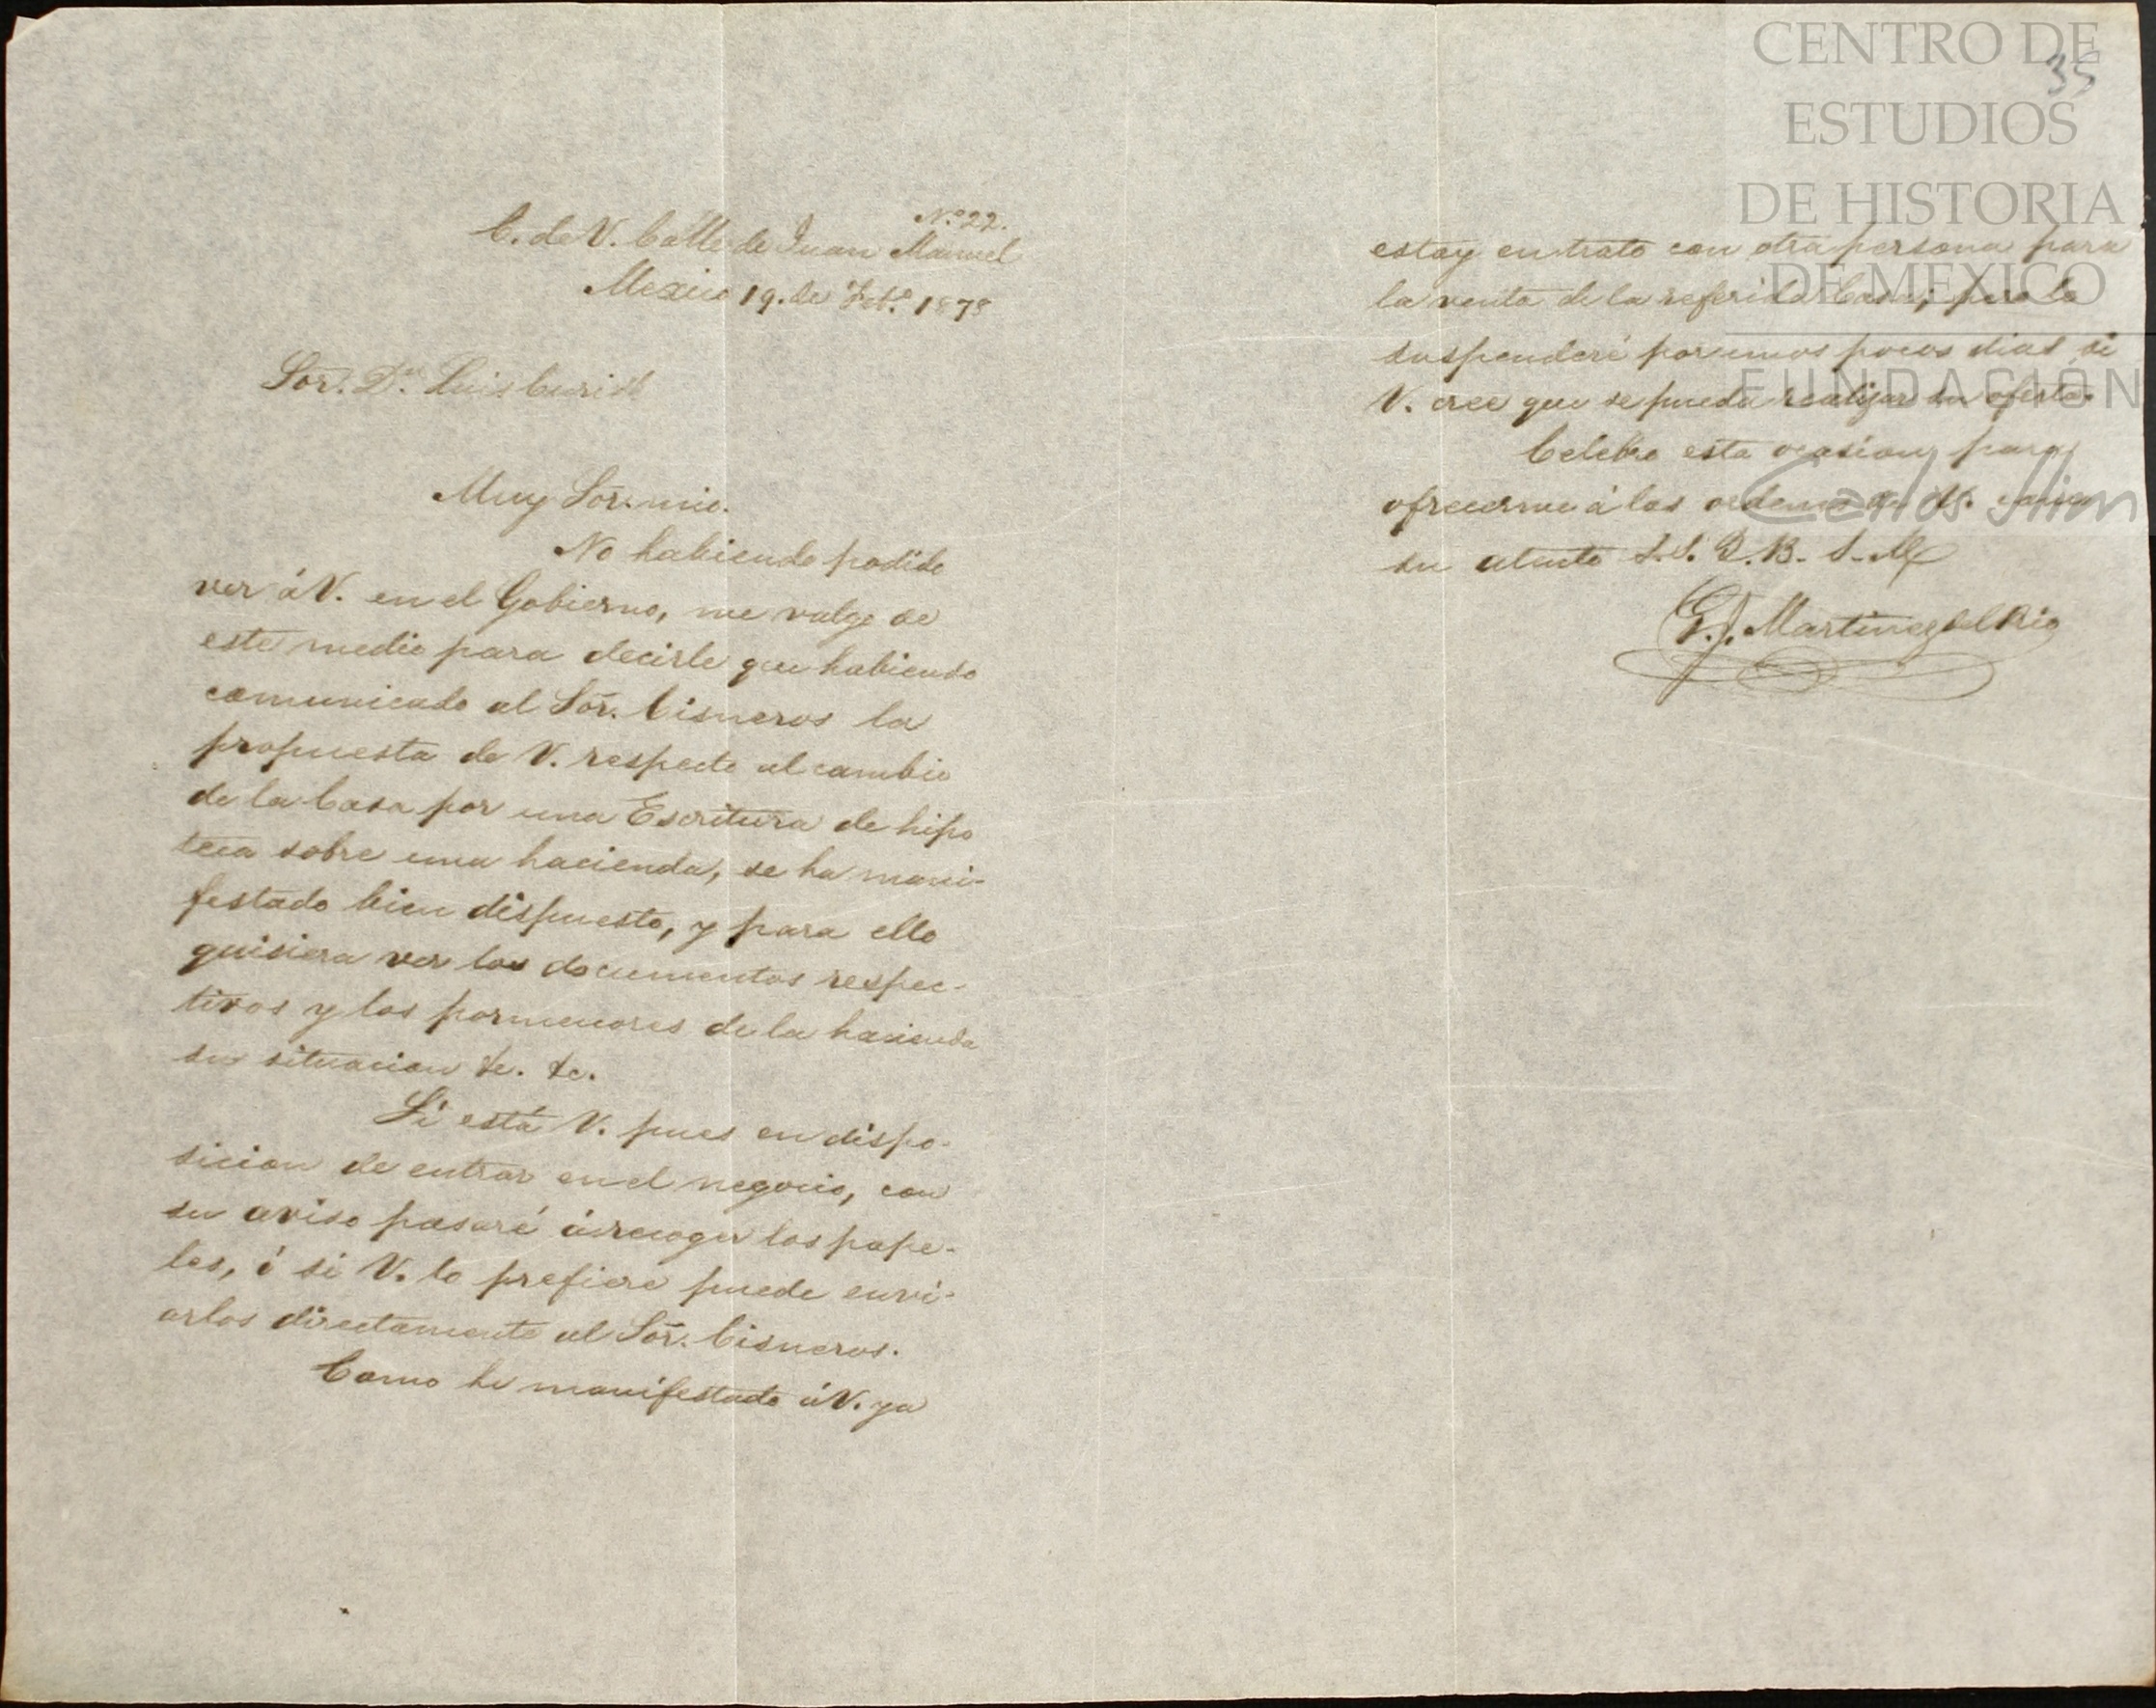 Nº 22.
C. de V. Calle de Juan Manuel
Mexico 19. de Feb.º 1878
Sor. Dn. Luis Curiel
Muy Sor. mio.
No habiendo podido
ver á V. en el Gobierno, me valgo de
este medio para decirle que habiendo
comunicado al Sor. Cisneros la
propuesta de V. respecto al cambio
de la Casa por una Escritura de hipo
teca sobre una hacienda, se ha mani-
festado bien dispuesto, y para ello
quisiera ver los documentos respec-
tivos y los pormenores de la hacienda
su situacion &c. &c.
Si está V. pues en dispo-
sicion de entrar en el negocio, con
su aviso pasaré á recoger los pape-
les, ó si V. lo prefiere puede envi-
arlos directamente al Sor. Cisneros.
Como he manifestado á V. ya
35
estoy en trato con otra persona para
la venta de la referida Casa; pero lo
suspenderé por unos pocos dias si
V. cree que se pueda realizar su oferta.
Celebro esta ocasion para
ofrecerme á las ordenes de V. como
su atento S.S. Q.B.S.M.
Martinez del Rio
CENTRO DE
ESTUDIOS
DE HISTORIA
DE MEXICO
FUNDACIÓN
Carlos Slim